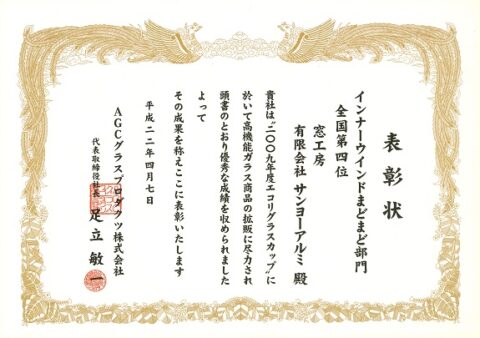 表彰状
インナーウインドまどまど部門
全国第四位
窓工房
有限会社 サンヨーアルミ 殿
貴社は“二〇〇九年度エコリグラスカップ”に
於いて高機能ガラス商品の拡販に尽力され
頭書のとおり優秀な成績を収められました
よって
その成果を称えここに表彰いたします
平成二二年四月七日
AGCグラスプロダクツ株式会社
代表取締役社長 足立敏一